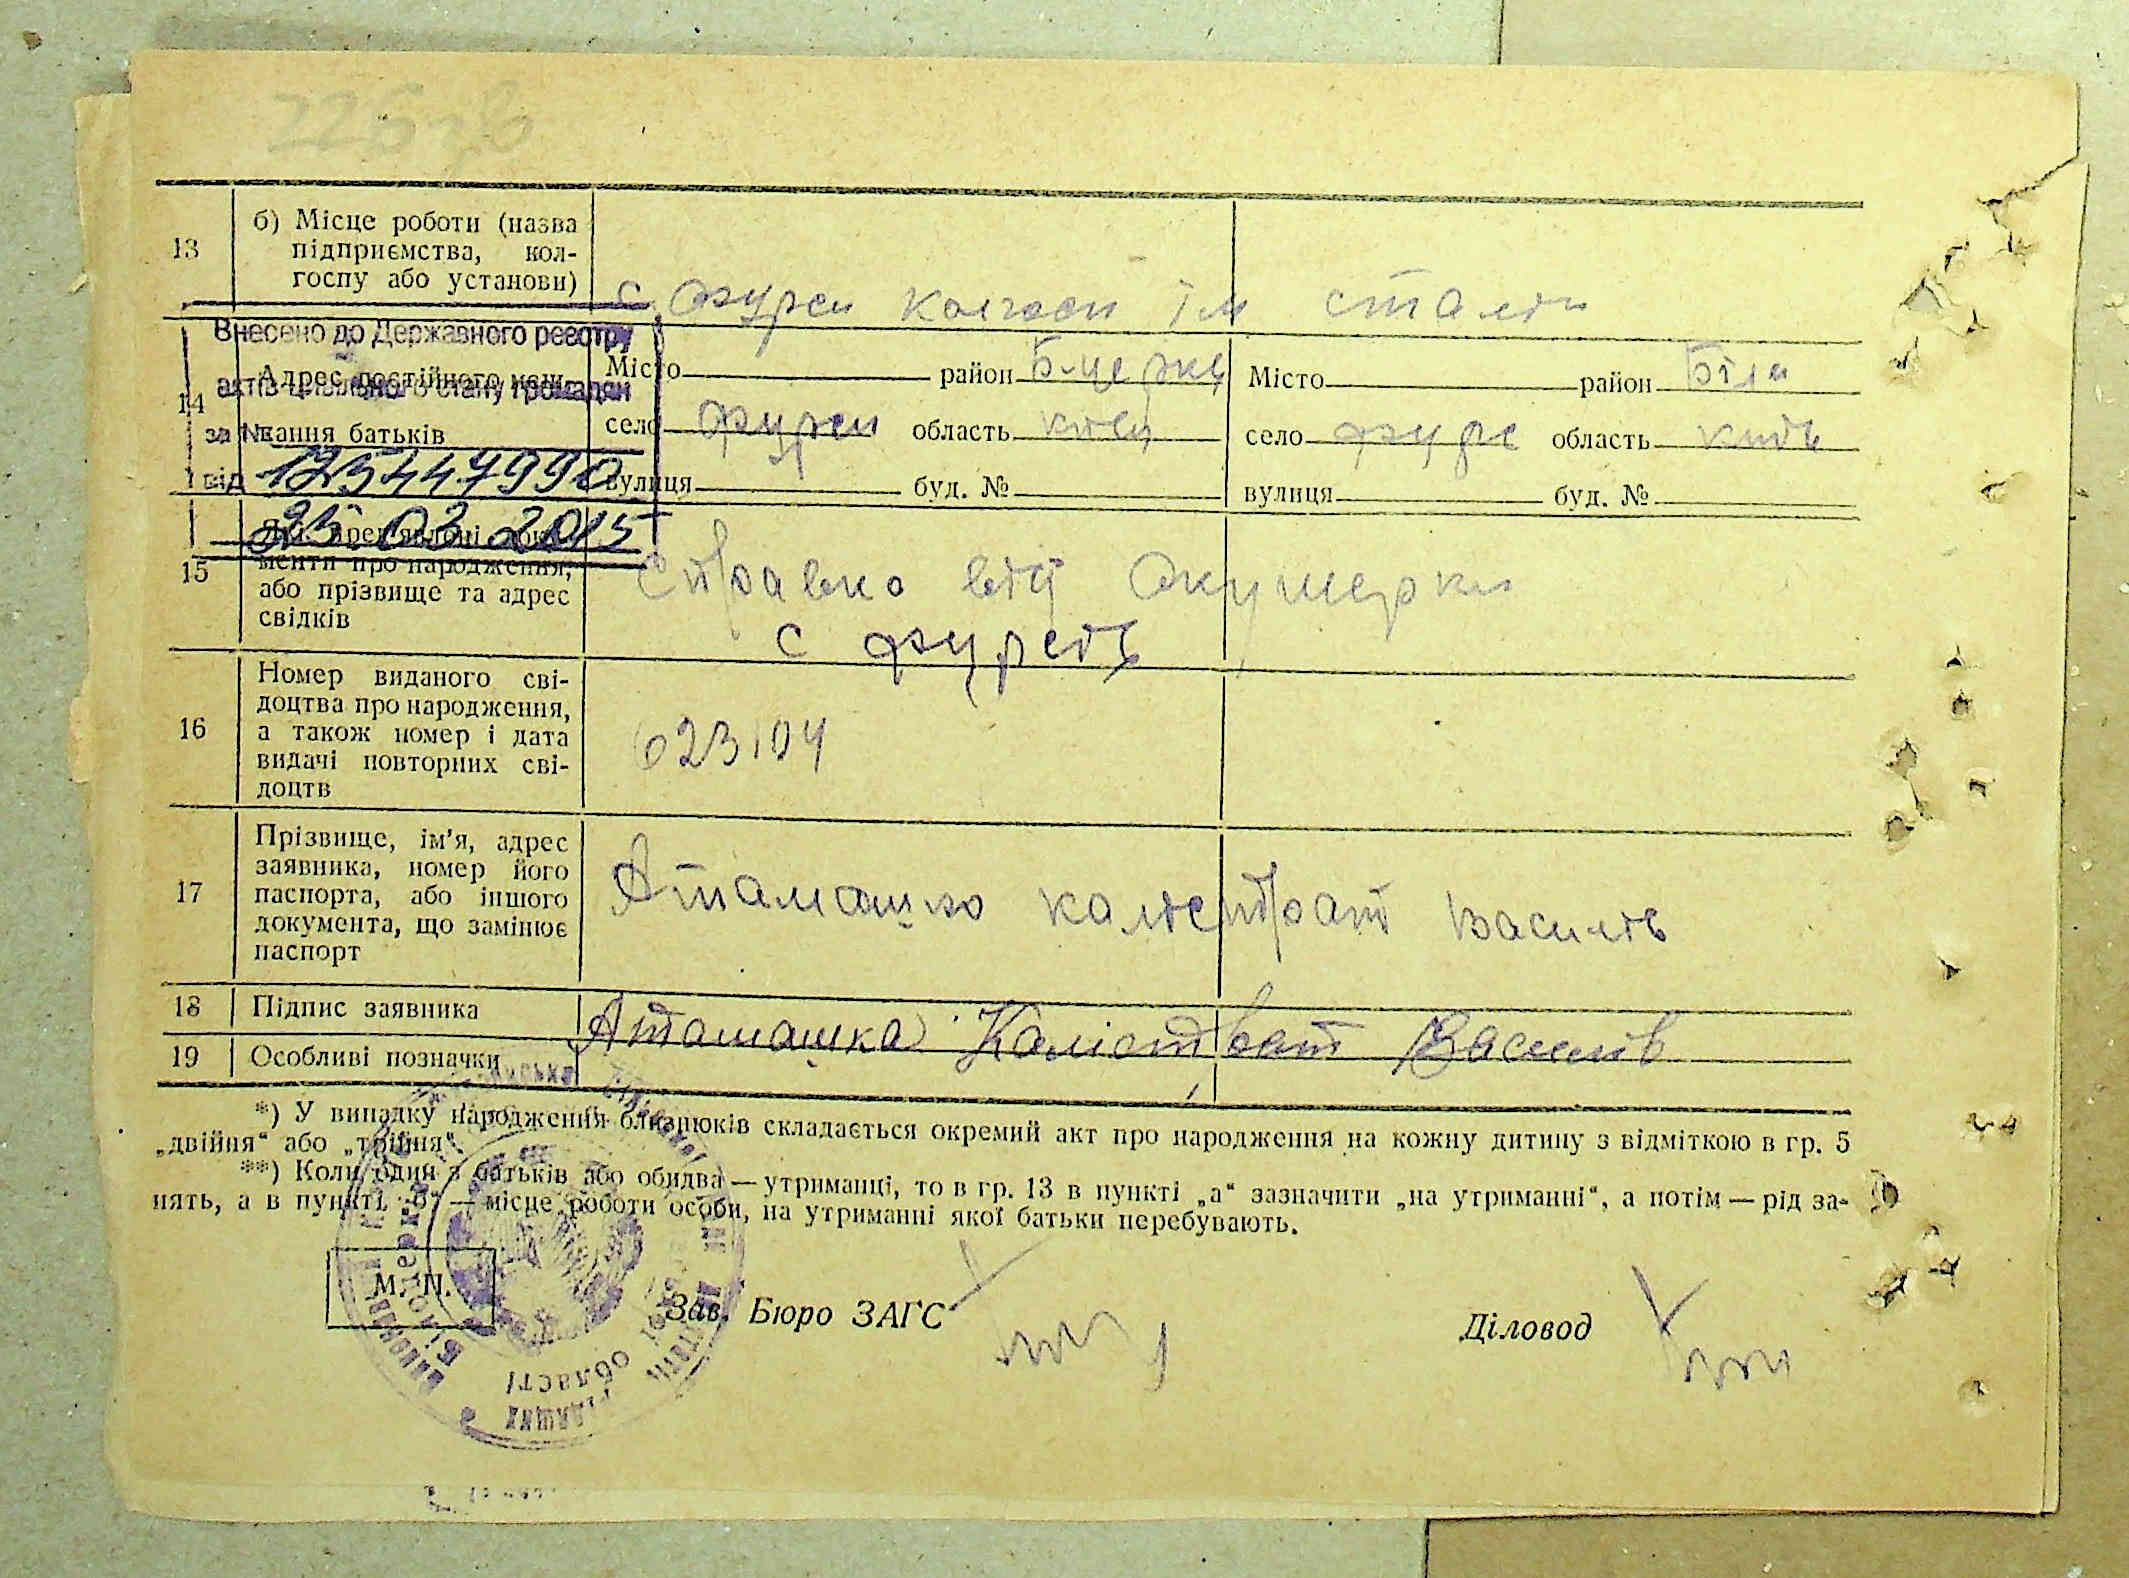 13
б) Місце роботи (назва
підприємства, кол-
госпу або установи)
с. фурси колгосп ім сталін
Внесено до Державного реєстру
актів цивільного стану громадян
за №
125447990
від
23. 03. 2015
14
Адрес постійного меш-
кання батьків
Місто район Б-церкв
село фурси область київ
вулиця буд. №
Місто район Біла
село фурс область київ
вулиця буд. №
15
менти про народження,
або прізвище та адрес
свідків
Справка від Акушерки
с фурсів
16
Номер виданого сві-
доцтва про народження,
а також номер і дата
видачі повторних сві-
доцтв
023104
17
Прізвище, ім'я, адрес
заявника, номер його
паспорта, або іншого
документа, що замінює
паспорт
Атамашко калістрат василів
18
Підпис заявника
Аташашка Калістрат Василів
19
Особливі позначки
*) У випадку народження близнюків складається окремий акт про народження на кожну дитину з відміткою в гр. 5
„двійня“ або „трійня“.
**) Коли один з батьків або обидва — утриманці, то в гр. 13 в пункті „а“ зазначити „на утриманні“, а потім — рід за-
нять, а в пункті „б“ — місце роботи особи, на утриманні якої батьки перебувають.
М. П.
Зав. Бюро ЗАГС
Діловод
області